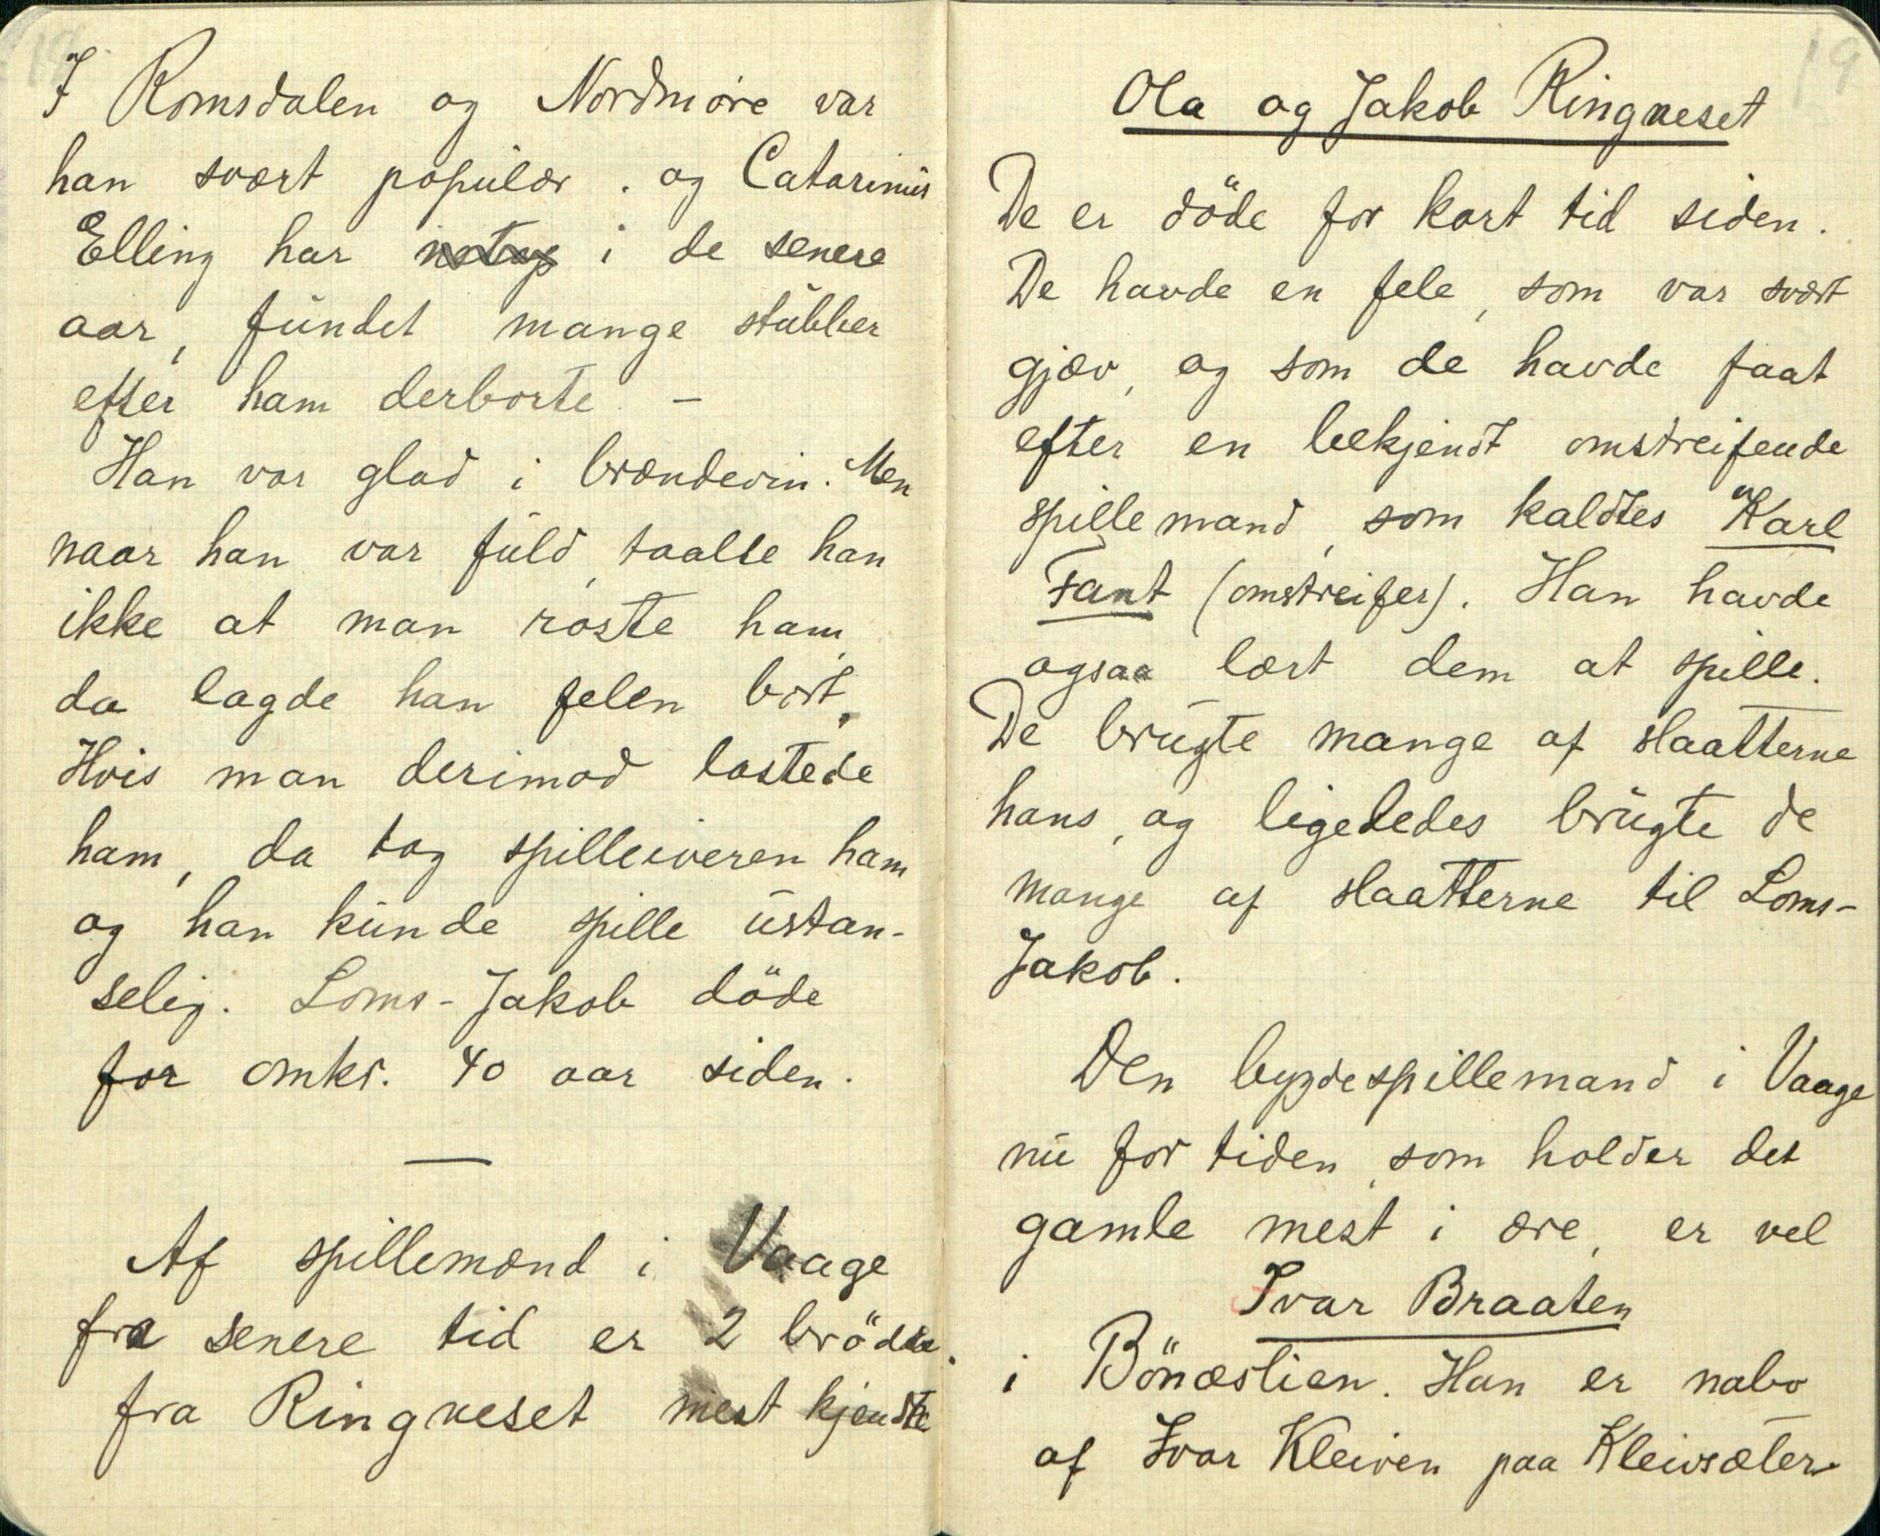 18
I Romsdalen og Nordmöre var
han svært populær. og Catarinus
Elling har netop i de senere
aar, fundet mange stubber
efter ham derborte. –
Han var glad i brændevin. Men
naar han var fuld, taalte han
ikke at man roste ham,
da lagde han felen bort.
Hvis man derimod lastede
ham, da tog spilleiveren ham
og han kunde spille ustan-
selig. Loms-Jakob döde
for omkr. 40 aar siden.
Af spillemænd i Vaage
fra senere tid er 2 brödre
fra Ringneset mest kjendte
19
Ola og Jakob Ringneset
De er döde for kort tid siden.
De havde en fele, som var svært
gjæv, og som de havde faat
efter en bekjendt omstreifende
spillemand, som kaldtes "Karl
Fant (omstreifer). Han havde
ogsaa lært dem at spille.
De brugte mange af slaatterne
hans, og ligeledes brugte de
mange af slaatterne til Loms-
Jakob.
Den bygdespillemand i Vaage
nu for tiden, som holder det
gamle mest i ære, er vel
Ivar Braaten
i Bönæslien. Han er nabo
af Ivar Kleiven paa Kleivsæter.